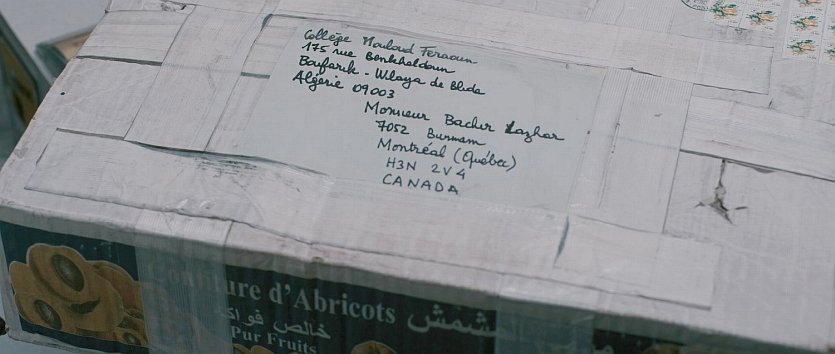 Collège Mouloud Feraoun
175 rue Benkheldoun
Boufarik - Wilaya de Blida
Algérie 09003
Monsieur Bachir Lazhar
7052 Burnam
Montréal (Québec)
H3N 2V4
CANADA
Confiture d'Abricots مشمش
خالص فواكه
Pur Fruits